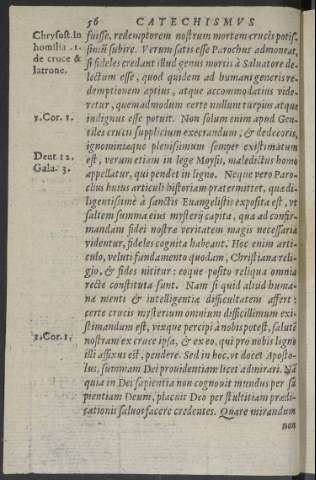 56 CATECHISMVS
Chrysost. In
homilia .1.
de cruce &
latrone.
fuisse, redemptorem nostrum mortem crucis potis-
simũ subire. Verum satis esse Parochus admoneat,
si fideles credant illud genus mortis à Saluatore de-
lectum esse, quod quidem ad humani generis re-
demptionem aptius, atque accommodatius vide-
retur, quemadmodum certe nullum turpius atque
1. Cor. 1.
indignius esse potuit. Non solum enim apud Gen-
tiles crucis supplicium execrandum, & dedecoris,
ignominiæque plenissimum semper existimatum
Deut 12.
est, verum etiam in lege Moysis, maledictus homo
Gala. 3.
appellatur, qui pendet in ligno. Neque vero Paro-
chus huius articuli historiam prætermittet, quæ di-
ligentissimè à sanctis Euangelistis exposita est, vt
saltem summa eius mysterij capita, quæ ad confir-
mandam fidei nostræ veritatem magis necessaria
videntur, fideles cognita habeant. Hoc enim arti-
culo, veluti fundamento quodam, Christiana reli-
gio, & fides nititur: eoque posito reliqua omnia
rectè constituta sunt. Nam si quid aliud huma-
næ menti & intelligentiæ difficultatem affert:
certe crucis mysterium omnium difficillimum exi-
stimandum est, vixque percipi à nobis potest, salutẽ
1. Cor. 1.
nostram ex cruce ipsa, & ex eo, qui pro nobis ligno
illi affixus est, pendere. Sed in hoc, vt docet Aposto-
lus, summam Dei prouidentiam licet admirari. Nã
quia in Dei sapientia non cognouit mundus per sa
pientiam Deum, placuit Deo per stultitiam prædi-
cationis saluos facere credentes. Quare mirandum
non